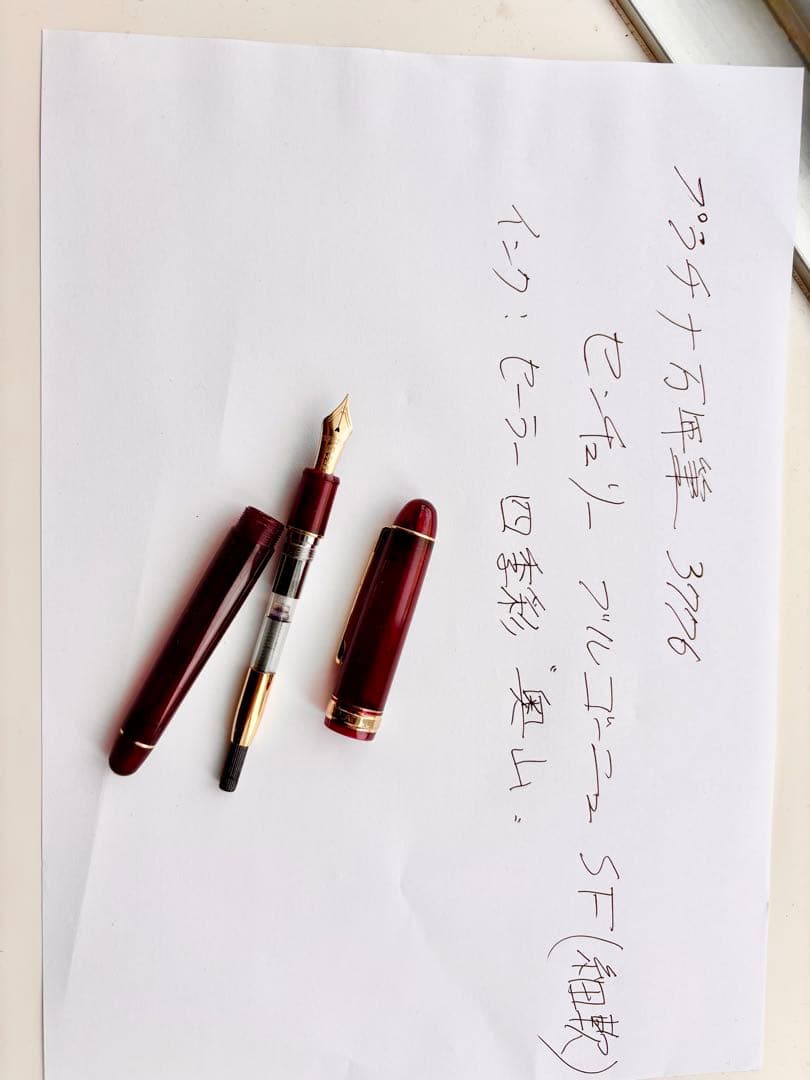 プラチナ万年筆 3776
センチュリー ブルゴーニュ SF(細軟)
インク: セーラー 四季彩 “奥山”